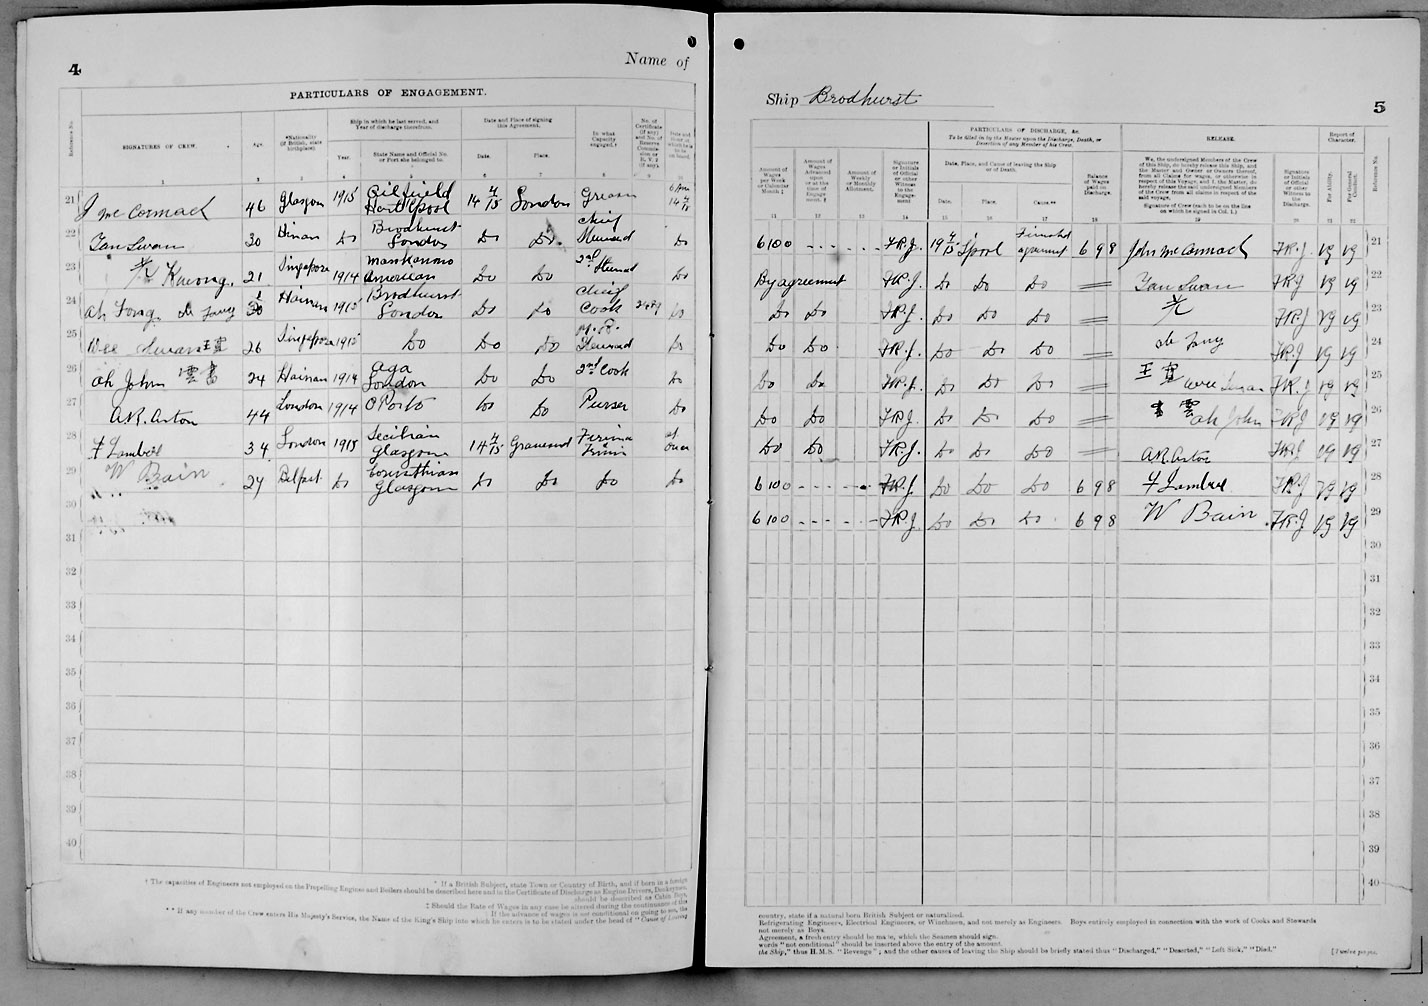 4
Name of
PARTICULARS OF ENGAGEMENT.
Reference No.
SIGNATURES OF CREW.
Age.
*Nationality (If British, state birthplace).
Ship in which he last served, and Year of discharge therefrom.
Year.
State Name and Official No. or Port she belonged to.
Date and Place of signing this Agreement.
Date.
Place.
In what Capacity engaged.†
No. of Certificate (if any) and No. of Reserve Commission or R.V.2 (if any).
1 2 3 4 5 6 7 8 9 10
21 J McCormack 46 Glasgow 1915 Oilfield Hartlepool 14 4/15 London Greaser 6 Am 14 4/15
22 Tan Swan 30 Hinan Do Brodhurst London Do Do Chief Steward Do
23 光 Kwong. 21 Singapore 1914 American Do Do 2nd Steward Do
24 Ah Fong 30 Hainan 1915 Brodhurst London Do Do Chief Cook Do
25 Wee Swan 王 26 Singapore 1915 Do Do Do Steward Do
26 Ah John 雲書 24 Hainan 1914 Aga London Do Do 2nd Cook Do
27 A.R. Arton 44 London 1914 OPorto Do Do Purser Do
28 F Lambell 34 London 1915 Secilian Glasgow 14 4/15 Gravesend Fireman at once
29 W Bain 24 Belfast Do Corinthian Glasgow Do Do Do Do
30
31
32
33
34
35
36
37
38
39
40
* If a British Subject, state Town or Country of Birth, and if born in a foreign
† The capacities of Engineers not employed on the Propelling Engines and Boilers should be described here and in the Certificate of Discharge as Engine Drivers, Donkeymen,
should be described as Cabin Boys,
‡ Should the Rate of Wages in any case be altered during the continuance of this
If the advance of wages is not conditional on going to sea, the
** If any member of the Crew enters His Majesty's Service, the Name of the King's Ship into which he enters is to be stated under the head of "Cause of Leaving
Ship Brodhurst
5
PARTICULARS OF DISCHARGE, &c.
To be filled in by the Master upon the Discharge, Death, or Desertion of any Member of his Crew.
RELEASE.
Report of Character.
Amount of Wages per Week or Calendar Month.‡
Amount of Wages Advanced upon or at the time of Engagement.‡
Amount of Weekly or Monthly Allotment.
Signature or Initials of Official or other Witness to the Engagement
Date, Place, and Cause of leaving the Ship or of Death.
Date.
Place.
Cause.**
Balance of Wages paid on Discharge.
We, the undersigned Members of the Crew of this Ship, do hereby release this Ship, and the Master and Owner or Owners thereof, from all Claims for wages, or otherwise in respect of this Voyage; and I, the Master, do hereby release the said undersigned Members of the Crew from all claims in respect of the said voyage.
Signature of Crew (each to be on the line on which he signed in Col. 1.)
Signature or Initials of Official or other Witness to the Discharge.
For Ability.
For General Conduct.
Reference No.
11 12 13 14 15 16 17 18 19 20 21 22
6 10 0 F.R.J. 19 4/15 L'pool Finished agreement 6 9 8 John McCormack F.R.J. vg vg 21
By agreement F.R.J. Do Do Do Tan Swan F.R.J vg vg 22
Do Do F.R.J. Do Do Do 光 F.R.J vg vg 23
Do Do F.R.J. Do Do Do F.R.J vg vg 24
Do Do F.R.J. Do Do Do 王 Wee Swan F.R.J vg vg 25
Do Do F.R.J. Do Do Do 書雲 Ah John F.R.J vg vg 26
Do Do F.R.J. Do Do Do A.R. Arton F.R.J vg vg 27
6 10 0 F.R.J. Do Do Do 6 9 8 F Lambell F.R.J vg vg 28
6 10 0 F.R.J. Do Do Do 6 9 8 W Bain F.R.J vg vg 29
30
31
32
33
34
35
36
37
38
39
40
country, state if a natural born British Subject or naturalised.
Refrigerating Engineers, Electrical Engineers, or Winchmen, and not merely as Engineers. Boys entirely employed in connection with the work of Cooks and Stewards
not merely as Boys.
Agreement, a fresh entry should be made, which the Seamen should sign.
words "not conditional" should be inserted above the entry of the amount.
the Ship," thus H.M.S. "Revenge"; and the other causes of leaving the Ship should be briefly stated thus "Discharged," "Deserted," "Left Sick," "Died."
[Twelve pages.